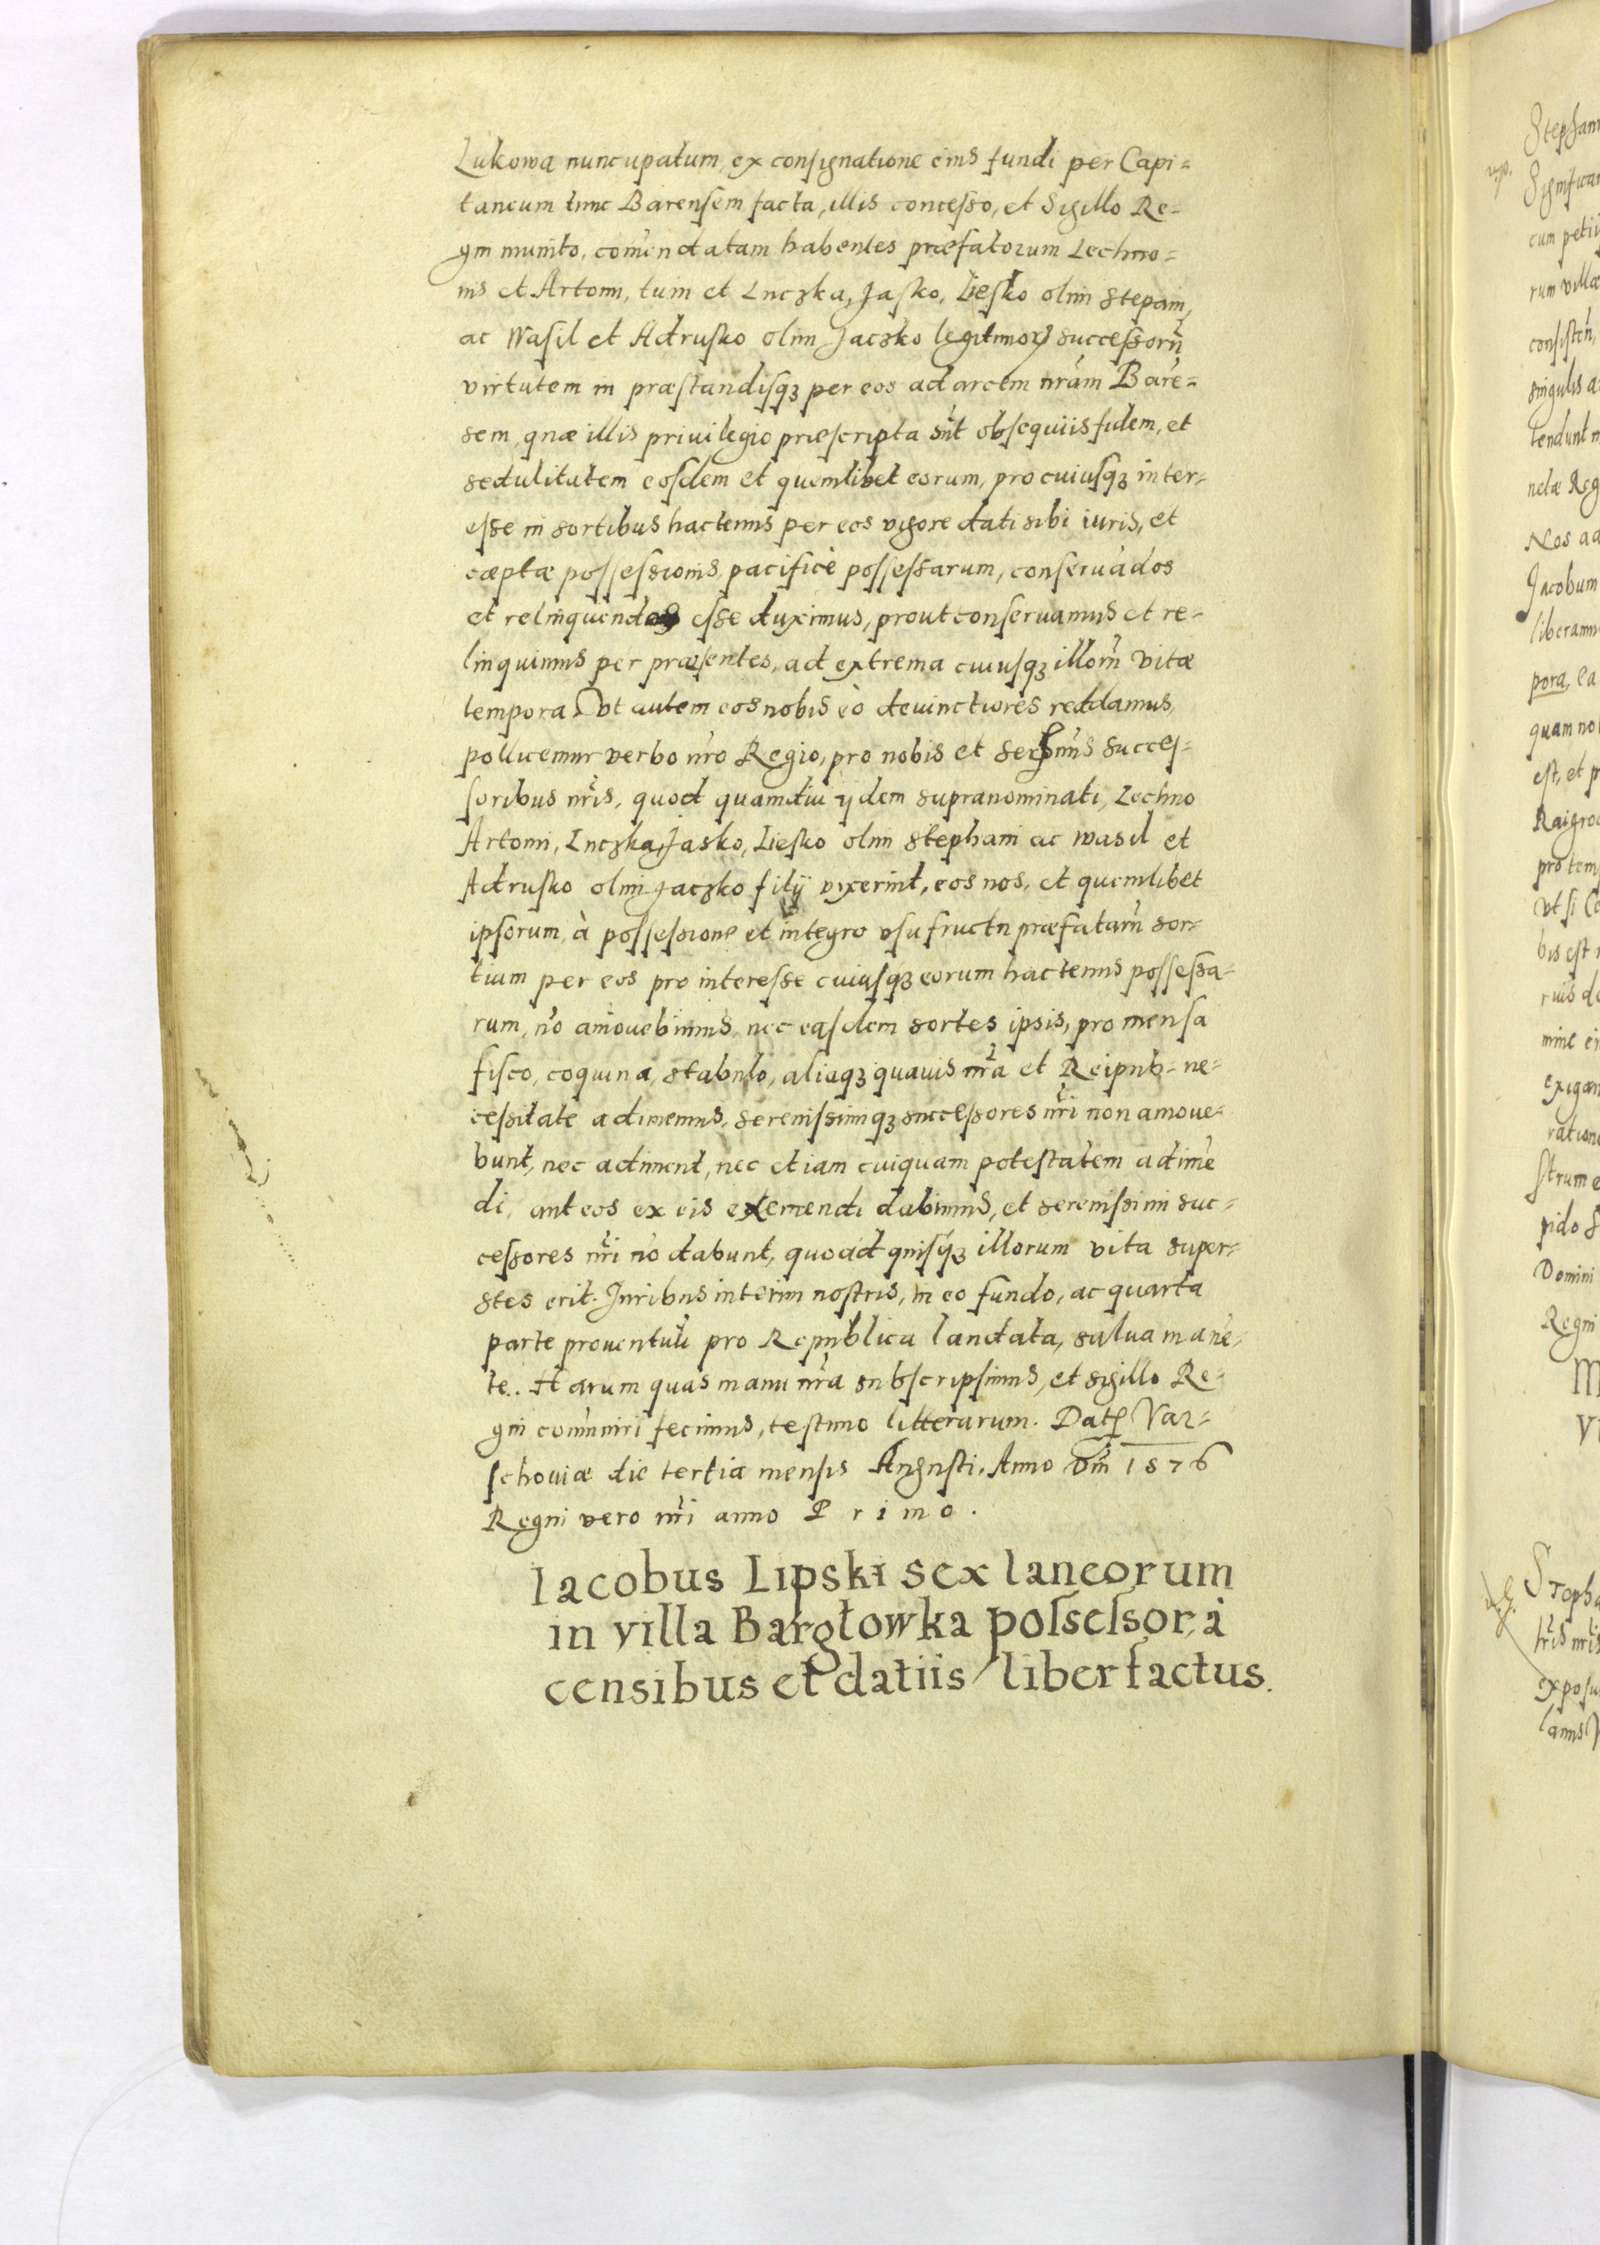 Lukowa nuncupatum, ex consignatione eius fundi per Capi=
taneum tunc Barensem facta, illis concesso, et Sigillo Re=
gni munito, comendatam habentes præfatorum Lechno=
nis et Artomi, tum et Luczka, Jasko, Liesko olim Stepani,
ac Wasil et Adrusko olim Jaczko legitimoꝝ successorū
virtutem in præstandisqꝫ per eos ad arcem nrām Barē=
sem, quæ illis priuilegio præscripta sūt obsequiis fidem, et
sedulitatem eosdem et quemlibet eorum, pro cuiusqꝫ inter=
esse in sortibus hactenus per eos vigore dati sibi iuris, et
cæptæ possessionis, pacificè possessarum, conseruādos
et relinquendos esse duximus, prout conseruamus et re=
linquimus per præsentes, ad extrema cuiusqꝫ illorū vitæ
tempora. Vt autem eos nobis eò deuinctiores reddamus,
pollicemur verbo nrō Regio, pro nobis et sermis succes=
soribus nrīs, quod quamdiu ydem supranominati, Lechno
Artomi, Luczka, Jasko, Liesko olim Stephani ac Wasil et
Adrusko olim Jaczko filÿ vixerint, eos nos, et quemlibet
ipsorum, à possessione et integro vsufructu præfatarū sor=
tium per eos pro interesse cuiusqꝫ eorum hactenus possessa=
rum, nō amouebimus, nec easdem sortes ipsis, pro mensa
fisco, coquina, stabulo, aliaqꝫ quauis nrā et Reipub= ne=
cessitate adimemus, serenissimiqꝫ successores nrī non amoue=
bunt, nec adiment, nec etiam cuiquam potestatem adimē
di, aut eos ex eis exemendi dabimus, et serenissimi suc=
cessores nrī nō dabunt, quoad quisqꝫ illorum vita super=
stes erit. Juribus interim nostris, in eo fundo, ac quarta
parte prouentuū pro Republica laudata, salua manē=
te.. Harum quas manu nrā subscripsimus, et sigillo Re=
gni comuniri fecimus, testimo litterarum. Dat Var=
schouiæ die tertia mensis Augusti. Anno Dm̄ 1576
Regni vero nrī anno Primo.
Iacobus Lipski sex laneorum
in villa Bargłowka possessor, à
censibus et datiis liber factus.